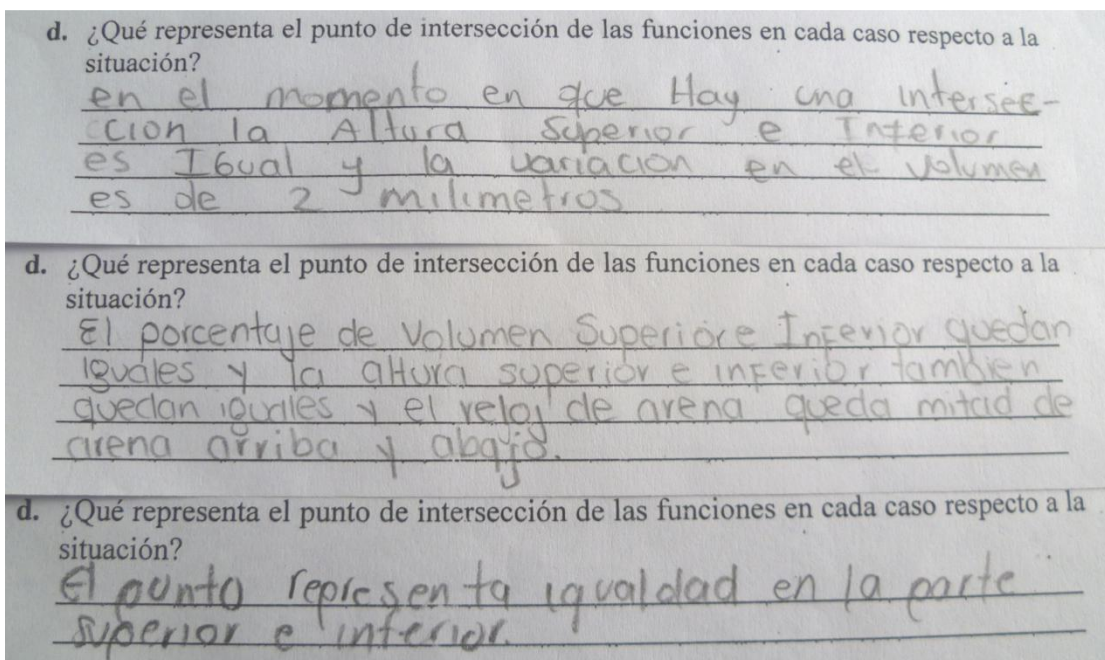 d. ¿Qué representa el punto de intersección de las funciones en cada caso respecto a la
situación?
en el momento en que Hay una intersec-
ccion la Altura Superior e Inferior
es IGual y la variacion en el volumen
es de 2 milimetros
d. ¿Qué representa el punto de intersección de las funciones en cada caso respecto a la
situación?
El porcentaje de Volumen Superior e Inferior quedan
iguales y la altura superior e inferior tambien
quedan iguales y el reloj de arena queda mitad de
arena arriba y abajo.
d. ¿Qué representa el punto de intersección de las funciones en cada caso respecto a la
situación?
El punto representa igualdad en la parte
superior e inferior.